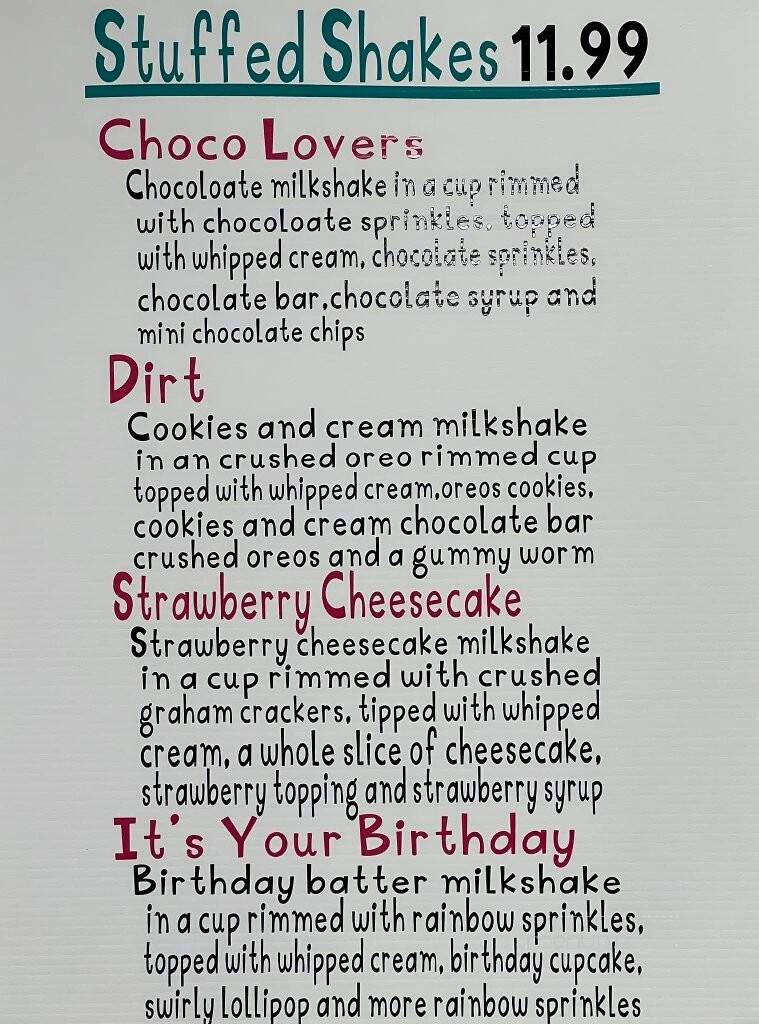 Stuffed Shakes 11.99
Choco Lovers
Chocoloate milkshake in a cup rimmed
with chocoloate sprinkles, topped
with whipped cream, chocolate sprinkles,
chocolate bar,chocolate syrup and
mini chocolate chips
Dirt
Cookies and cream milkshake
in an crushed oreo rimmed cup
topped with whipped cream,oreos cookies,
cookies and cream chocolate bar
crushed oreos and a gummy worm
Strawberry Cheesecake
Strawberry cheesecake milkshake
in a cup rimmed with crushed
graham crackers, tipped with whipped
cream, a whole slice of cheesecake,
strawberry topping and strawberry syrup
It's Your Birthday
Birthday batter milkshake
in a cup rimmed with rainbow sprinkles,
topped with whipped cream, birthday cupcake,
swirly lollipop and more rainbow sprinkles